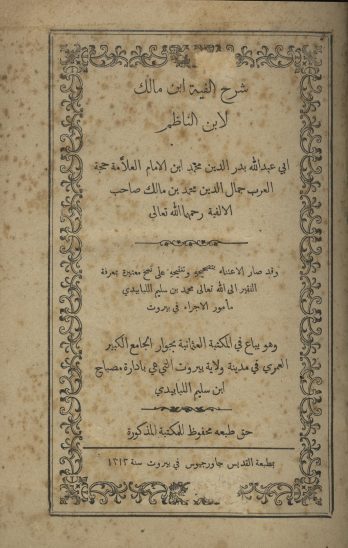 شرح الفية ابن مالك
لابن الناظم
ابي عبدالله بدر الدين محمّد ابن الامام العلاّمة حجة
العرب جمال الدين محمد بن مالك صاحب
الالفية رحمهما الله تعالى
وقد صار الاعتناء بتصحيحهِ وتنقيحهِ على نسخ معتبرة بمعرفة
الفقير الى الله تعالى محمد بن سليم اللبابيدي
مأمور الاجراء في بيروت
وهو يباع في المكتبة العثمانية بجوار الجامع الكبير
العمري في مدينة ولاية بيروت التي هي بادارة مصباح
ابن سليم اللبابيدي
حق طبعه محفوظ للمكتبة المذكورة
بطبعة القديس جاورجيوس في بيروت سنة ١٣١٢